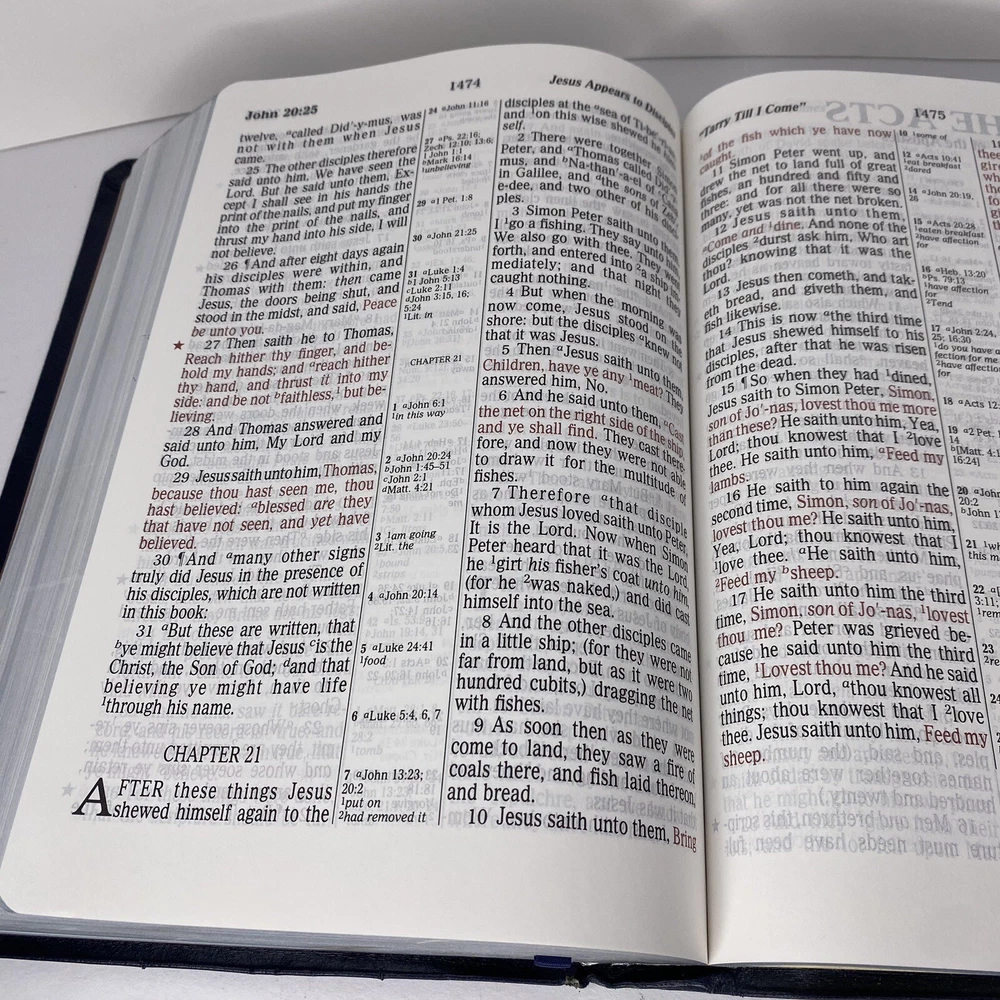 John 20:25
1474
Jesus Appears to
twelve, ᵃcalled Did'-y-mus, was
not with them when Jesus
came.
25 The other disciples therefore
said unto him, We have seen the
Lord. But he said unto them, Ex-
cept I shall see in his hands the
print of the nails, and put my finger
into the print of the nails, and
thrust my hand into his side, I will
not believe.
26 ¶And after eight days again
his disciples were within, and
Thomas with them: then came
Jesus, the doors being shut, and
stood in the midst, and said, Peace
be unto you.
★ 27 Then saith he to Thomas,
Reach hither thy finger, and be-
hold my hands; and ᵃreach hither
thy hand, and thrust it into my
side: and be not ᵇfaithless,¹ but be-
lieving.
28 And Thomas answered and
said unto him, My Lord and my
God.
29 Jesus saith unto him, Thomas,
because thou hast seen me, thou
hast believed: ᵃblessed are they
that have not seen, and yet have
believed.
30 ¶And ᵃmany other signs
truly did Jesus in the presence of
his disciples, which are not written
in this book:
31 ᵃBut these are written, that
ᵇye might believe that Jesus ᶜis the
Christ, the Son of God; ᵈand that
believing ye might have life
¹through his name.
CHAPTER 21
AFTER these things Jesus
shewed himself again to the
24 ᵃJohn 11:16
27 ᵃPs. 22:16;
Zech. 12:10; 13:6;
1 John 1:1
ᵇMark 16:14
¹unbelieving
29 ᵃ1 Pet. 1:8
30 ᵃJohn 21:25
31 ᵃLuke 1:4
ᵇ1 John 5:13
ᶜLuke 2:11
ᵈJohn 3:15, 16;
5:24
¹Lit. in
CHAPTER 21
1 ᵃJohn 6:1
¹in this way
2 ᵃJohn 20:24
ᵇJohn 1:45–51
ᶜJohn 2:1
ᵈMatt. 4:21
3 ¹am going
²Lit. the
4 ᵃJohn 20:14
5 ᵃLuke 24:41
¹food
6 ᵃLuke 5:4, 6, 7
7 ᵃJohn 13:23;
20:2
¹put on
²had removed it
disciples at the ᵃsea of
and ¹on this wise shewed he
self.
2 There were together
Peter, and ᵃThomas called
mus, and ᵇNa-than'-a-el of
in Galilee, and ᵈthe sons of
e-dee, and two other of his
ples.
3 Simon Peter saith unto
I ¹go a fishing. They say unto
We also go with thee. They went
forth, and entered into ²a ship
mediately; and that night they
caught nothing.
4 But when the morning was
now come, Jesus stood on the
shore: but the disciples ᵃknew not
that it was Jesus.
5 Then ᵃJesus saith unto them,
Children, have ye any ¹meat? They
answered him, No.
6 And he said unto them, ᵃCast
the net on the right side of the ship,
and ye shall find. They cast there-
fore, and now they were not able
to draw it for the multitude of
fishes.
7 Therefore ᵃthat disciple
whom Jesus loved saith unto Peter,
It is the Lord. Now when Simon
Peter heard that it was the Lord,
he ¹girt his fisher's coat unto him,
(for he ²was naked,) and did cast
himself into the sea.
8 And the other disciples came
in a little ship; (for they were not
far from land, but as it were two
hundred cubits,) dragging the net
with fishes.
9 As soon then as they were
come to land, they saw a fire of
coals there, and fish laid thereon,
and bread.
10 Jesus saith unto them, Bring
"Tarry Till I Come"
1475
of the fish which ye have now
caught.
11 Simon Peter went up, and
drew the net to land full of great
fishes, an hundred and fifty and
three: and for all there were so
many, yet was not the net broken.
12 Jesus saith unto them,
ᵃCome and ¹dine. And none of the
disciples ²durst ask him, Who art
thou? knowing that it was the
13 Jesus then cometh, and tak-
eth bread, and giveth them, and
fish likewise.
14 This is now ᵃthe third time
that Jesus shewed himself to his
disciples, after that he was risen
from the dead.
15 ¶So when they had ¹dined,
Jesus saith to Simon Peter, Simon,
son of Jo'-nas, lovest thou me more
than these? He saith unto him, Yea,
Lord; thou knowest that I ²love
thee. He saith unto him, ᵃFeed my
lambs.
16 He saith to him again the
second time, Simon, son of Jo'-nas,
lovest thou me? He saith unto him,
Yea, Lord; thou knowest that I
¹love thee. ᵃHe saith unto him,
²Feed my ᵇsheep.
17 He saith unto him the third
time, Simon, son of Jo'-nas, ¹lovest
thou me? Peter was grieved be-
cause he said unto him the third
time, ¹Lovest thou me? And he said
unto him, Lord, ᵃthou knowest all
things; thou knowest that I ²love
thee. Jesus saith unto him, Feed my
sheep.
10 ¹some of
12 ᵃActs 10:41
¹eat breakfast
²dared
14 ᵃJohn 20:19,
26
15 ᵃActs 20:28
¹eaten breakfast
²have affection
for
16 ᵃHeb. 13:20
ᵇPs. 79:13
¹have affection
for
²Tend
17 ᵃJohn 2:24,
25; 16:30
¹do you have
fection for me
²have affection
for
18 ᵃActs 12:
19
14
ᵇ[Matt. 4:1
16:24]
20 ᵃJohn
20:2
ᵇJohn 1
21
this m
22
3:11;
23